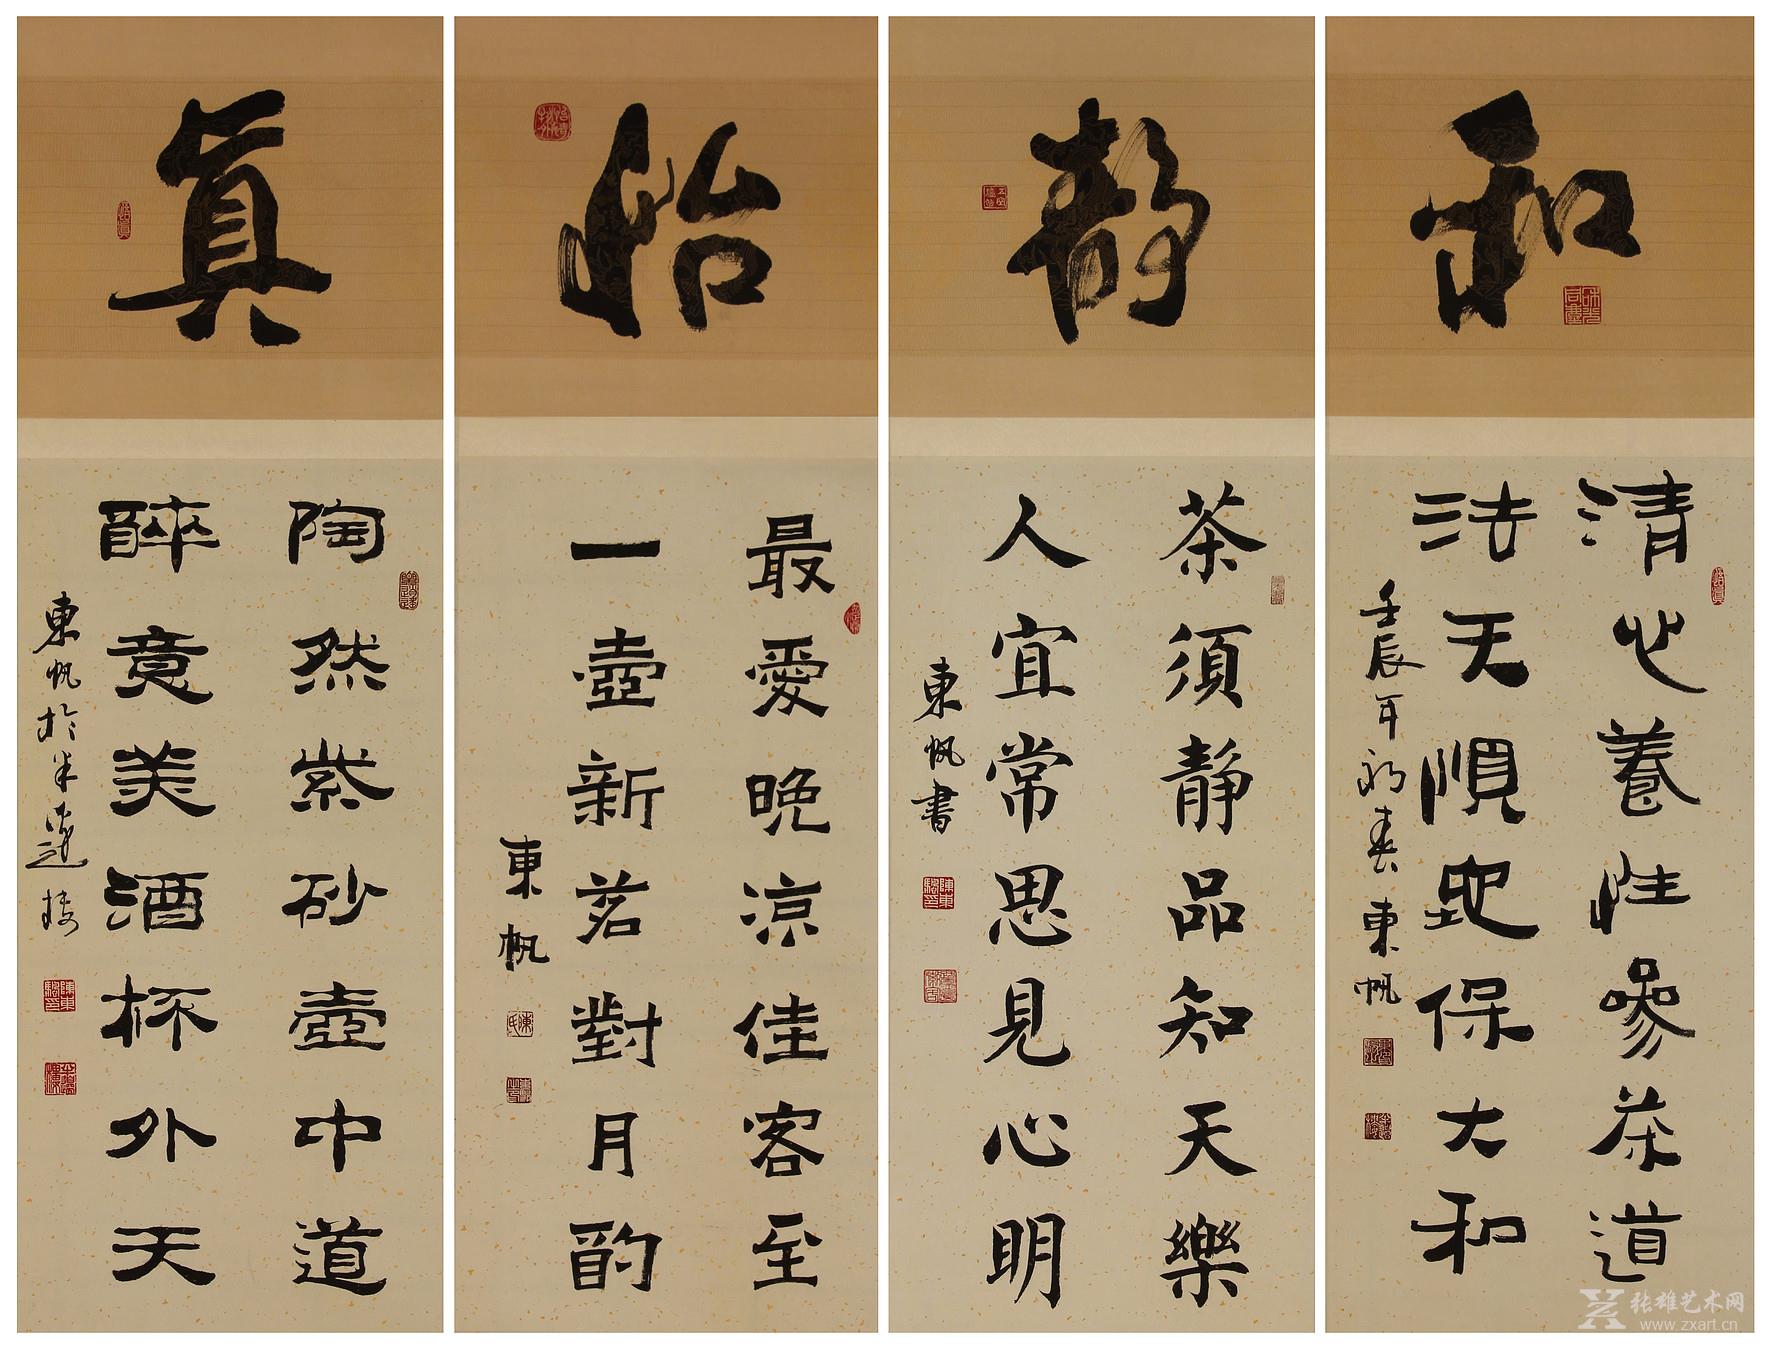 和
清心養性參茶道
法天順地保大和
壬辰年初春東帆
靜
茶須靜品知天樂
人宜常思見心明
東帆書
怡
最愛晚涼佳客至
一壺新茗對月酌
東帆
真
陶然紫砂壺中道
醉意美酒杯外天
東帆於半蓮樓
张雄艺术网
www.zxart.cn